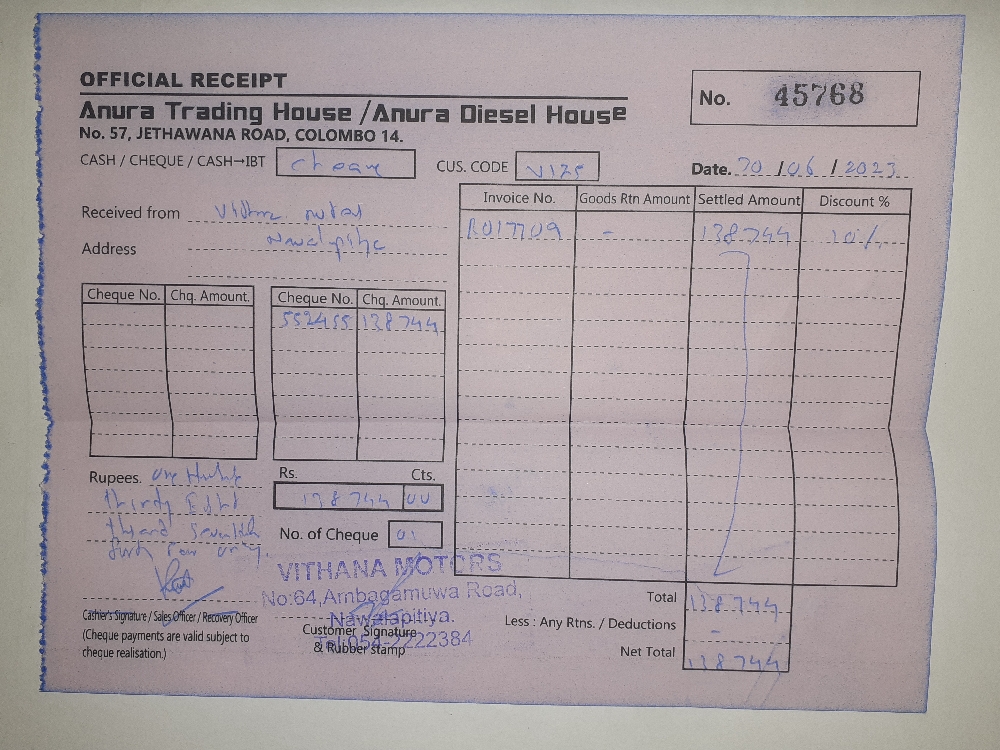 OFFICIAL RECEIPT
Anura Trading House / Anura Diesel House
No. 57, JETHAWANA ROAD, COLOMBO 14.
No. 45768
CASH / CHEQUE / CASH→IBT cheque
CUS. CODE V125
Date. 30 / 06 / 2023
Received from Vithana
Address Nawalapitiya
Invoice No. Goods Rtn Amount Settled Amount Discount %
R017709 - 138744 10%
Cheque No. Chq. Amount. Cheque No. Chq. Amount.
552455 138744
Rupees. One
Rs. Cts.
138744 00
No. of Cheque 01
VITHANA MOTORS
No:64,Ambagamuwa Road,
Nawalapitiya.
Tel:054-2222384
Cashier's Signature / Sales Officer / Recovery Officer
(Cheque payments are valid subject to
cheque realisation.)
Customer Signature
& Rubber stamp
Total 138744
Less : Any Rtns. / Deductions -
Net Total 138744